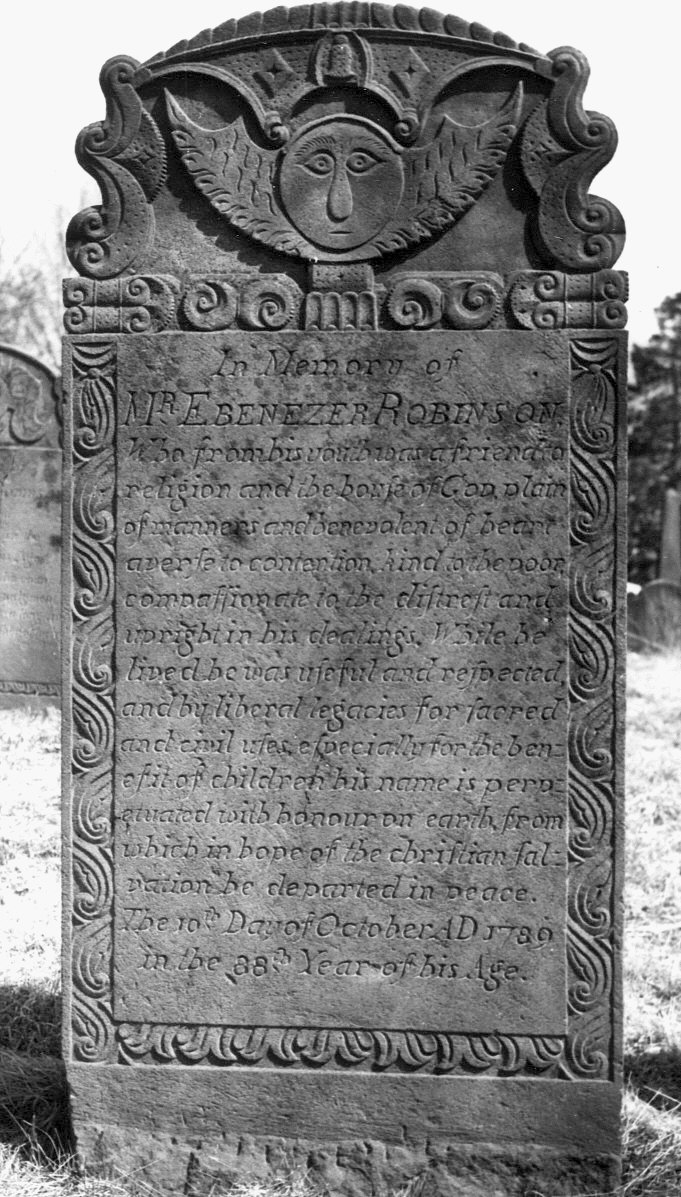 In Memory of
MR EBENEZER ROBINSON,
Who from his youth was a friend to
religion and the houſe of GOD, plain
of manners and benevolent of heart
averſe to contention, kind to the poor,
compaſſionate to the diſtreſt and
upright in his dealings. While he
lived he was uſeful and reſpected,
and by liberal legacies for sacred
and civil uſes, eſpecially for the ben=
efit of children his name is perp=
etuated with honour on earth, from
which in hope of the chriſtian ſal=
vation he departed in peace.
The 10th Day of October AD 1789
in the 88th Year of his Age.